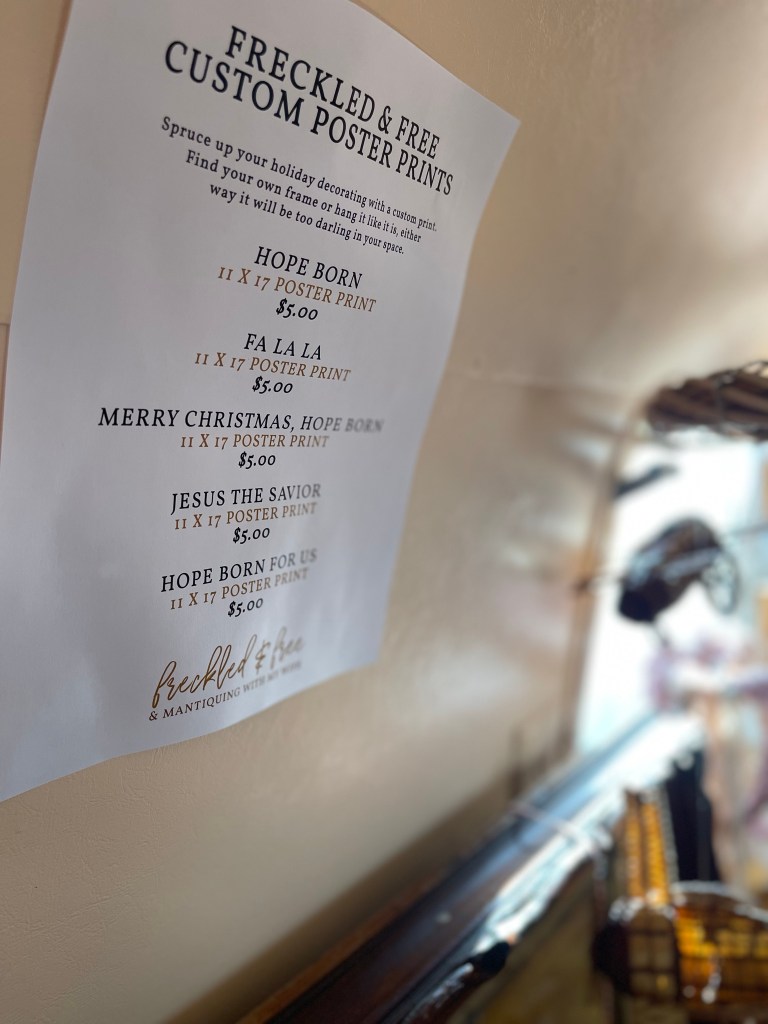 FRECKLED & FREE
CUSTOM POSTER PRINTS
Spruce up your holiday decorating with a custom print.
Find your own frame or hang it like it is, either
way it will be too darling in your space.
HOPE BORN
11 X 17 POSTER PRINT
$5.00
FA LA LA
11 X 17 POSTER PRINT
$5.00
MERRY CHRISTMAS, HOPE BORN
11 X 17 POSTER PRINT
$5.00
JESUS THE SAVIOR
11 X 17 POSTER PRINT
$5.00
HOPE BORN FOR US
11 X 17 POSTER PRINT
$5.00
freckled & free
& MANTIQUING WITH MY WIFE